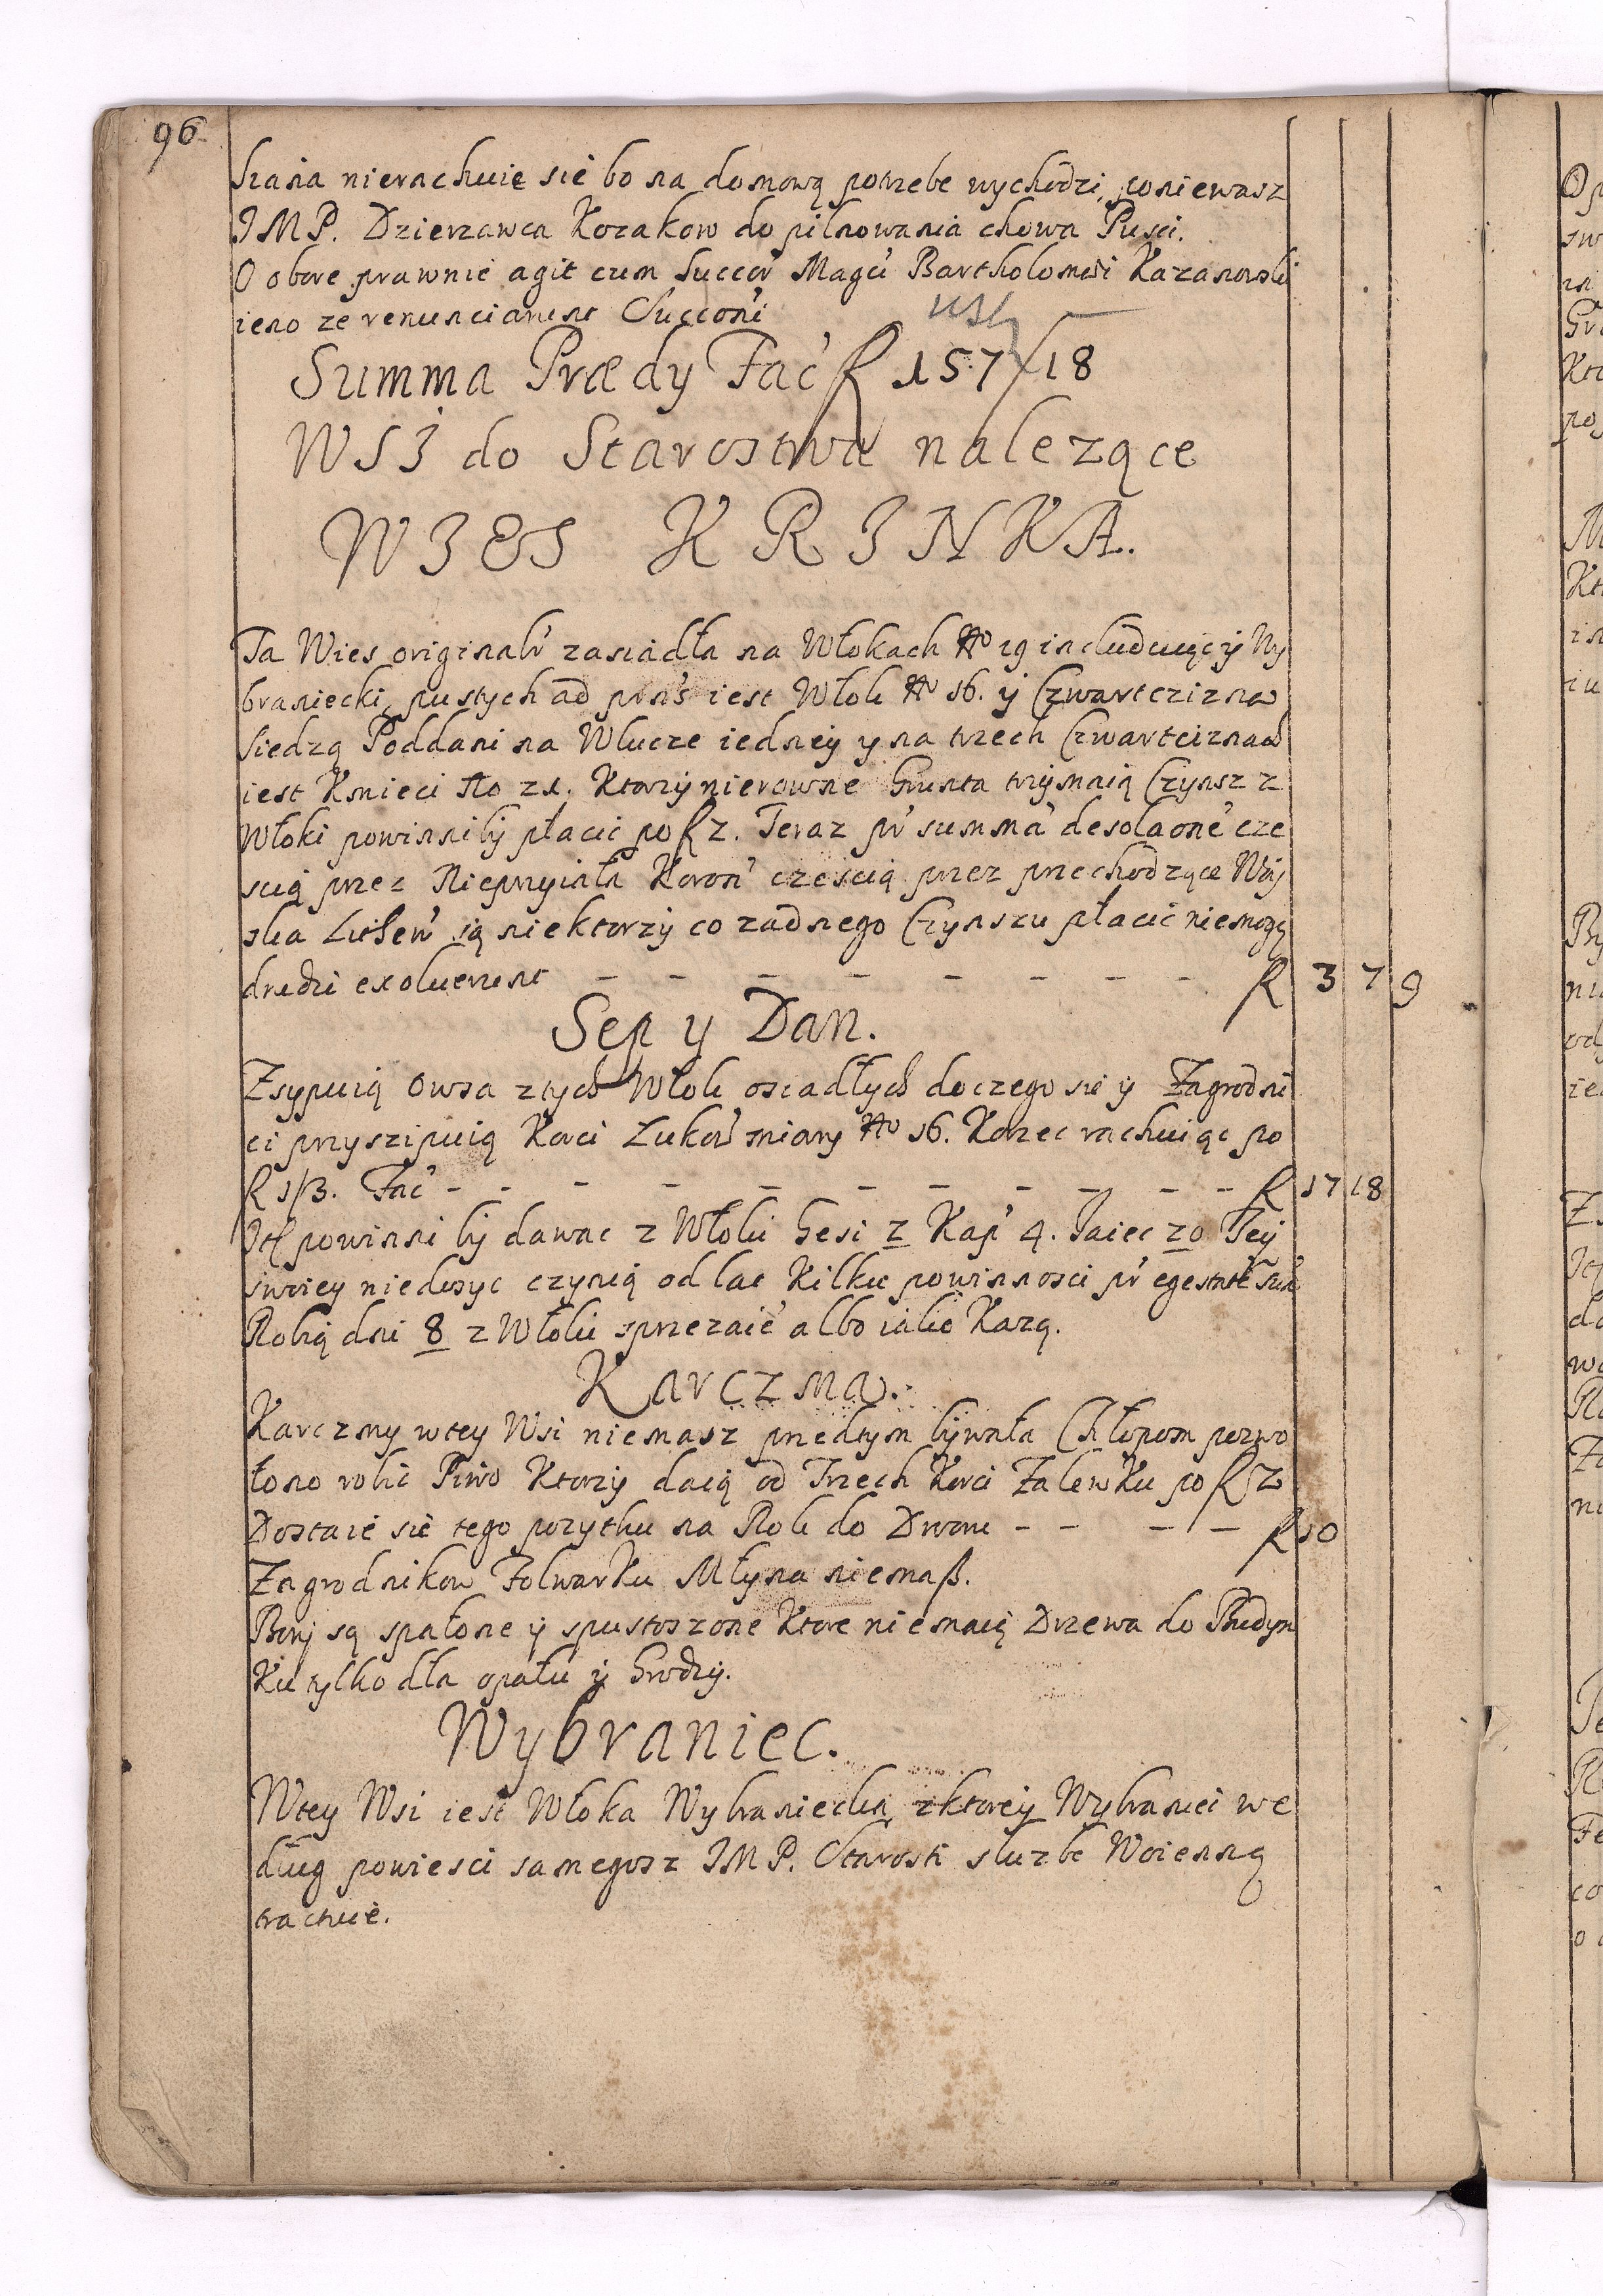 96
Siana nierachuię się bo na domową potrzebe wychodzi, poniewasz
JMP. Dzierzawca Kozakow do pilnowania chowa Pusci.
O obore prawnie agit cum Succeſ Magci Bartholomæi Kazanowski
ieno ze renunciarunt Succoni
Summa Prædy Fac fl 157/18
WSJ do Starostwa nalezące
WJES KRJNKA.
Ta Wies original zasiadła na Włokach No 19 includuięcÿ Wy
braniecki, pustych ad prns iest Włok No 16. ÿ Czwartcizna
Siedzą Poddani na Wlucze iedneÿ y na trzech Czwartciznach
iest Kmieci No 21. Ktorzÿ nierowne Grunta trzÿmaią Czynsz z
Włoki powinni bÿ płacic po fl 2. Teraz pr summa desolaone cze
scią przez Nieprzyiala Koron czescią przez przechodzące Woÿ
ska Lithew są niektorzÿ co zadnego Czynszu płacic niemogą
drudzi exoluerunt - - - - - - - - fl 3 7 9
Sep y Dan.
Zsypuią Owsa z tych Włok osiadłych do czego się ÿ Zagrodni
ci przyszipuią Korci Lukow miary No 16. Korzec rachuiąc po
fl 1/3. Fac - - - - - - - - - - fl 17 18
It powinni bÿ dawac z Włoki Gesi 2 Kap 4. Jaiec 20 Teÿ
swoiey niedosyc czynią od lat Kilku powinnosci pr egestate sua
Robią dni 8 z Włoki sprzezaie albo iako Kazą.
Karczma.
Karczmy wtey Wsi niemasz przedtym bÿwała Chłopom pozwo
lono robic Piwo Ktorzÿ daią od Trzech Korci Zalewku po fl 2
Dostaie się tego pozytku na Rok do Dworu - - - - fl 10
Zagrodnikow Folwarku Młyna niemaß.
Borÿ są spalone ÿ spustoszone Ktore niemaią Drzewa do Budyn
Ku tylko dla opału ÿ Grodzÿ.
Wybraniec.
Wtey Wsi iest Włoka Wybraniecka z ktoreÿ Wybraniec we
dług powiesci samegosz JMP. Starosti słuzbe Woienną
tractuie.